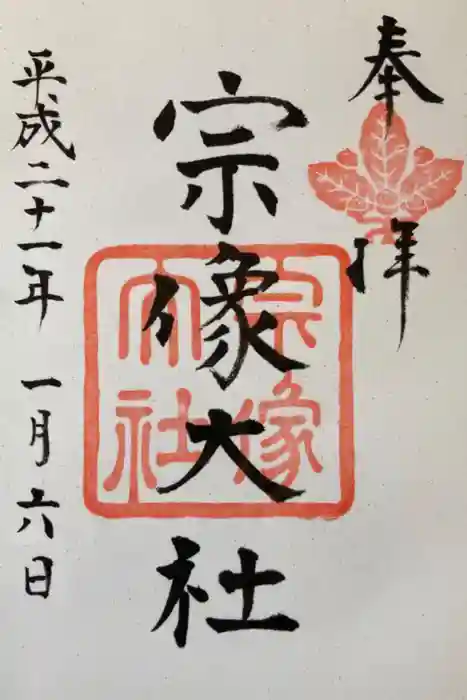 奉拝
宗像大社
宗像
大社
平成二十一年 一月六日